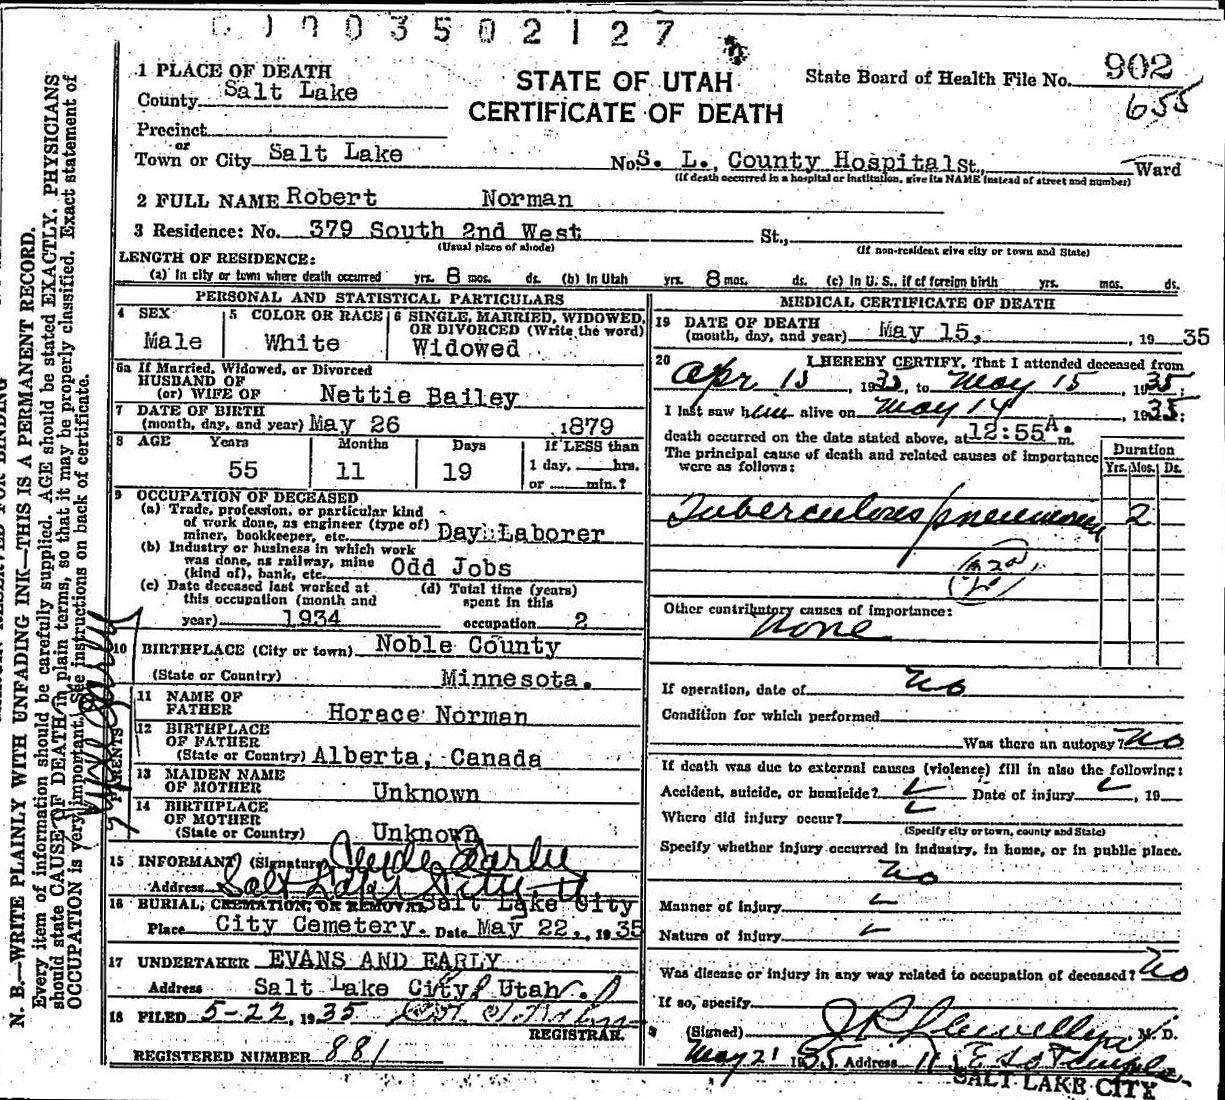 0 1 0 0 3 5 0 2 1 2 7
1 PLACE OF DEATH
County Salt Lake
Precinct
or
Town or City Salt Lake
STATE OF UTAH
CERTIFICATE OF DEATH
State Board of Health File No. 902
655
No. S. L., County Hospital St., Ward
(If death occurred in a hospital or institution, give its NAME instead of street and number)
2 FULL NAME Robert Norman
3 Residence: No. 379 South 2nd West St.,
(Usual place of abode) (If non-resident give city or town and State)
LENGTH OF RESIDENCE:
(a) In city or town where death occurred yrs. 8 mos. ds. (b) In Utah yrs. 8 mos. ds. (c) In U. S., if of foreign birth yrs. mos. ds.
PERSONAL AND STATISTICAL PARTICULARS
4 SEX
Male
5 COLOR OR RACE
White
6 SINGLE, MARRIED, WIDOWED,
OR DIVORCED (Write the word)
Widowed
6a If Married, Widowed, or Divorced
HUSBAND OF
(or) WIFE OF Nettie Bailey
7 DATE OF BIRTH
(month, day, and year) May 26 1879
8 AGE Years Months Days If LESS than
55 11 19 1 day, hrs.
or min.?
9 OCCUPATION OF DECEASED
(a) Trade, profession, or particular kind
of work done, as engineer (type of)
miner, bookkeeper, etc. Day Laborer
(b) Industry or business in which work
was done, as railway, mine
(kind of), bank, etc. Odd Jobs
(c) Date deceased last worked at
this occupation (month and
year) 1934
(d) Total time (years)
spent in this
occupation 2
10 BIRTHPLACE (City or town) Noble County
(State or Country) Minnesota.
PARENTS
11 NAME OF
FATHER Horace Norman
12 BIRTHPLACE
OF FATHER
(State or Country) Alberta, Canada
13 MAIDEN NAME
OF MOTHER Unknown
14 BIRTHPLACE
OF MOTHER
(State or Country) Unknown
15 INFORMANT (Signature) Clyde Early
Address Salt Lake City, Ut.
16 BURIAL, CREMATION, OR REMOVAL Salt Lake City
Place City Cemetery. Date May 22, 1935
17 UNDERTAKER EVANS AND EARLY
Address Salt Lake City, Utah.
18 FILED 5-22, 1935
REGISTRAR.
REGISTERED NUMBER 881
MEDICAL CERTIFICATE OF DEATH
19 DATE OF DEATH
(month, day, and year) May 15, 1935
20 I HEREBY CERTIFY, That I attended deceased from
Apr 15, 1935, to May 15, 1935;
I last saw him alive on May 14, 1935;
death occurred on the date stated above, at 12:55 A. m.
The principal cause of death and related causes of importance
were as follows:
Duration
Yrs. Mos. Ds.
Tuberculous pneumonia 2
Other contributory causes of importance:
None
If operation, date of No
Condition for which performed
Was there an autopsy? No
If death was due to external causes (violence) fill in also the following:
Accident, suicide, or homicide? Date of injury , 19
Where did injury occur?
(Specify city or town, county and State)
Specify whether injury occurred in industry, in home, or in public place.
No
Manner of injury
Nature of injury
Was disease or injury in any way related to occupation of deceased? No
If so, specify
(Signed) J R Llewellyn M. D.
May 21 1935 Address 115 E So Temple
SALT LAKE CITY
N. B.—WRITE PLAINLY WITH UNFADING INK—THIS IS A PERMANENT RECORD.
Every item of information should be carefully supplied. AGE should be stated EXACTLY. PHYSICIANS
should state CAUSE OF DEATH in plain terms, so that it may be properly classified. Exact statement of
OCCUPATION is very important. See instructions on back of certificate.